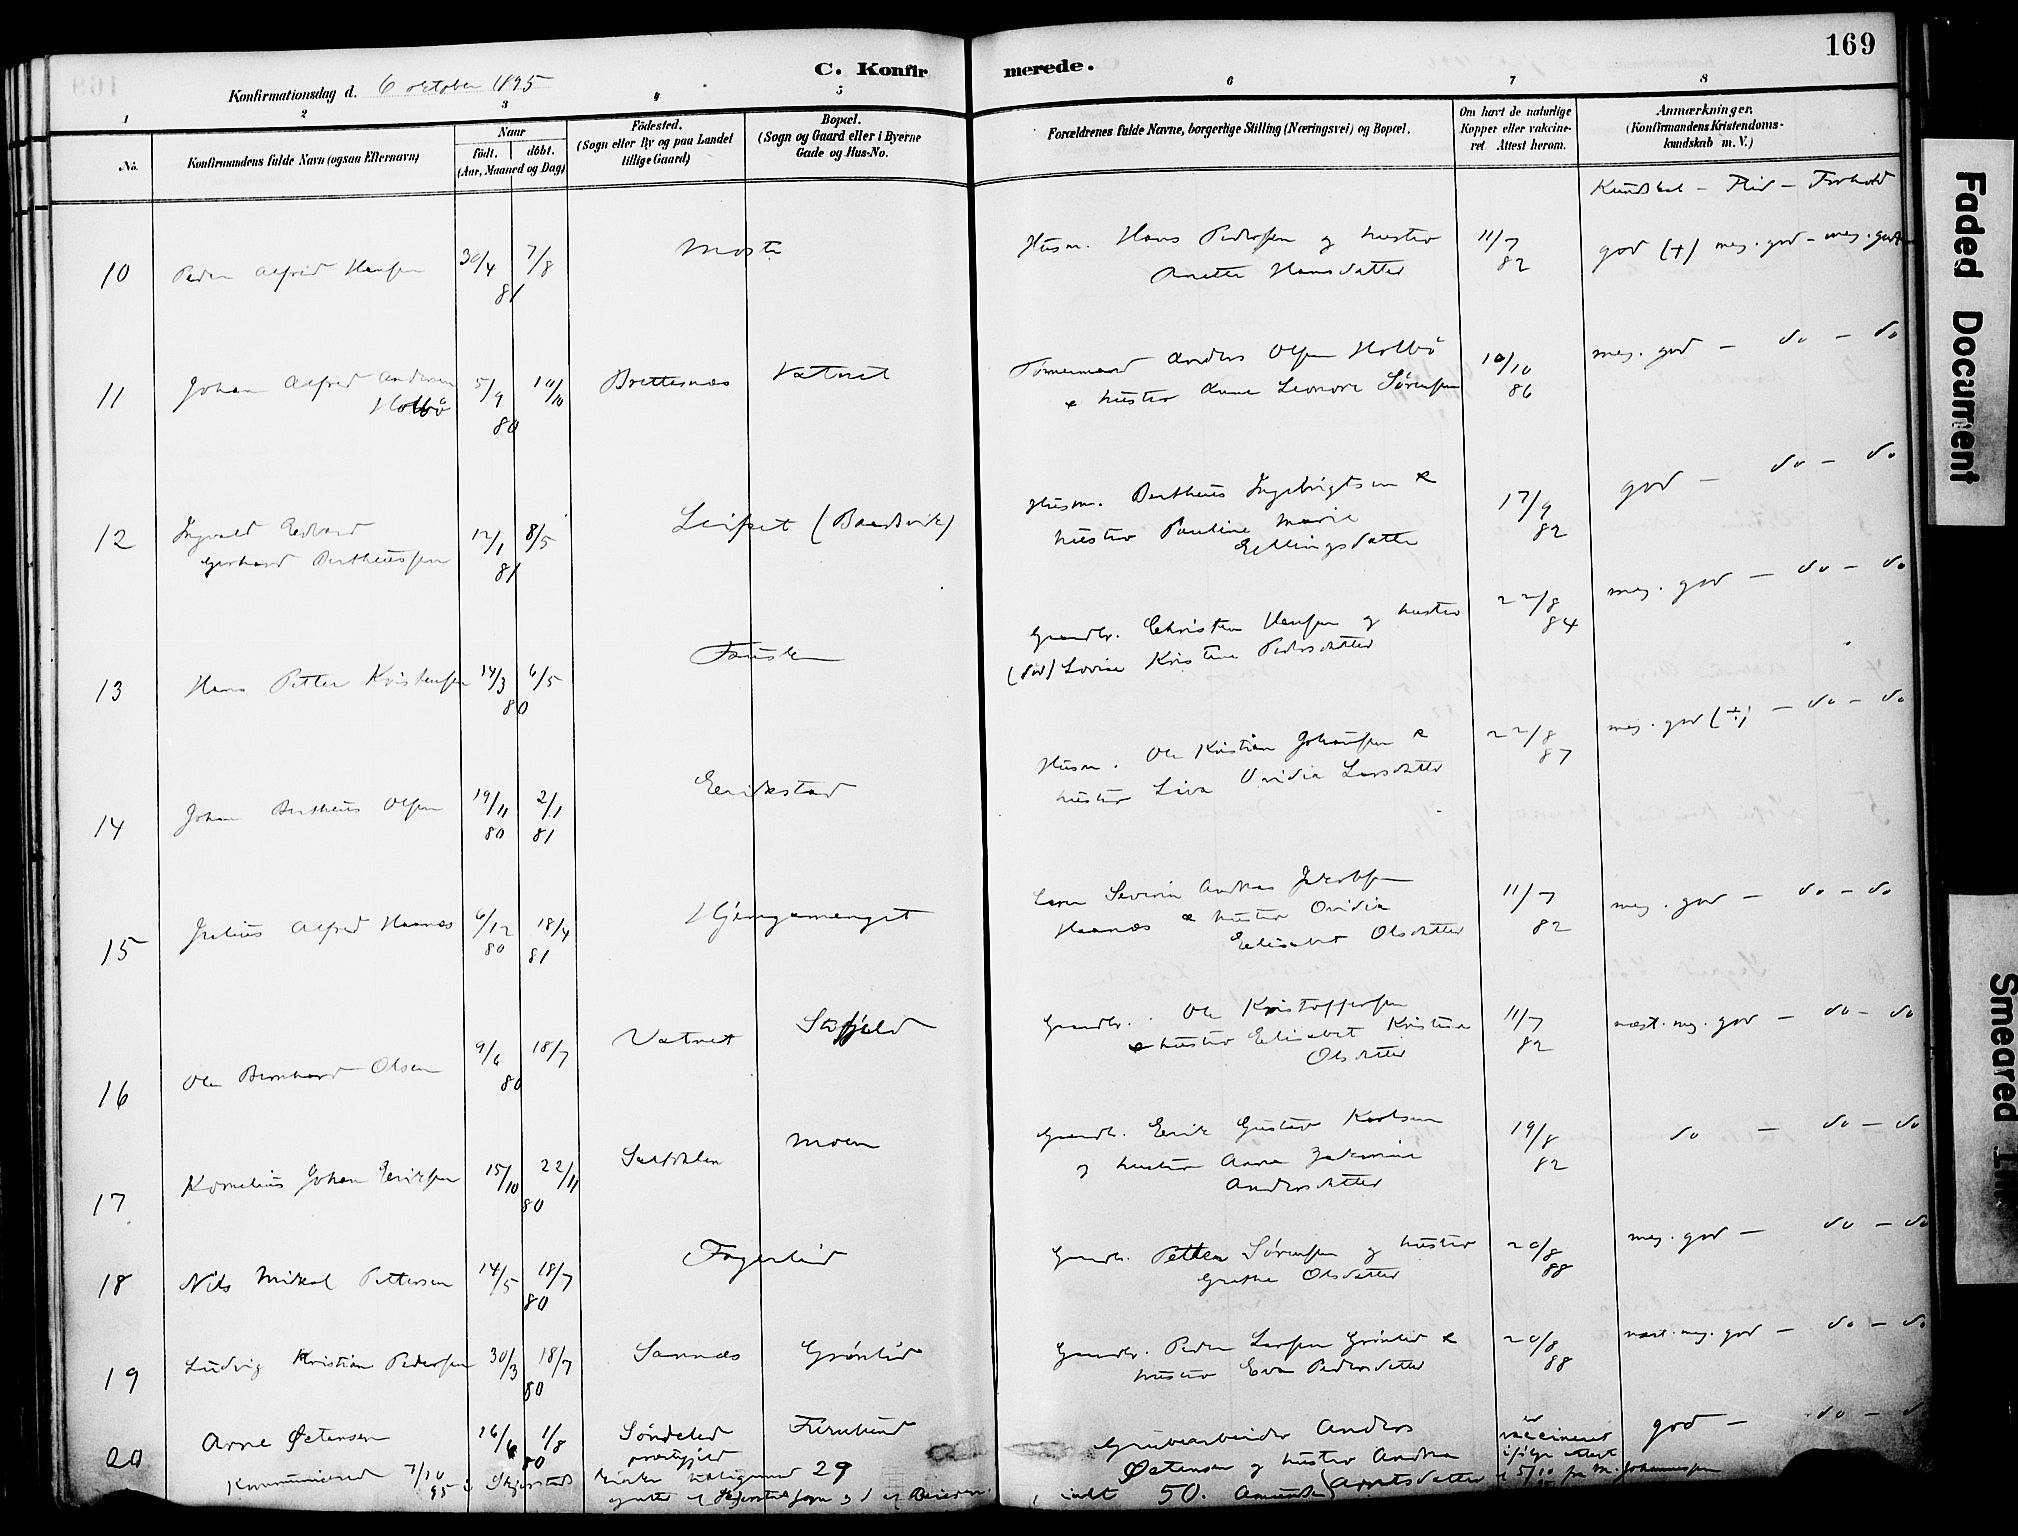 169
C. Konfirmerede.
Konfirmationsdag d. 6 october 1895
1 2 3 4 5 6 7 8
No.
Konfirmandens fulde Navn (ogsaa Efternavn)
Naar
födt. döbt.
(Aar, Maaned og Dag)
Födested.
(Sogn eller By og paa Landet
tillige Gaard)
Bopæl.
(Sogn og Gaard eller i Byerne
Gade og Hus-No.
Forældrenes fulde Navne, borgerlige Stilling (Næringsvei) og Bopæl.
Om havt de naturlige
Kopper eller vakcine-
ret Attest herom.
Anmærkninger,
(Konfirmandens Kristendoms-
kundskab m. V.)
Kundskab - Flid - Forhold
10 Peder Alfred Hansen 30/4 81 7/8
Husm. Hans Pedersen og hustro 11/7 82 god (+) meg. god - meg. god
Anette Hansdatter
11 Johan Alfred Andersen 5/9 80 10/10 Brettesnæs Vatnet
Holbö
Tømmermand Anders Olsen Holbö 10/10 86 meg. god - do - do
& hustro Anne Leonore Sørensen
12 Ingvald Edvard 12/1 81 8/5 Leifset (Baadsvik)
Gerhard Bertheussen
Husm. Bertheus Ingebrigtsen & 17/9 82 god - do - do
hustro Pauline Marie
Ellingsdatter
13 Hans Petter Kristensen 14/3 80 6/5 Fauske
Gaardbr. Christen Hansen og hustro 22/8 84 meg. god - do - do
(död) Lovise Kristine Pedersdatter
14 Johan Bertheus Olsen 19/11 80 2/1 81 Erikstad
Husm. Ole Kristian Johansen & 22/8 87 meg. god (÷) - do - do
hustro Liva Ovidia Larsdatter
15 Julius Alfred Haanæs 6/12 80 18/4 81 Hjemgamenget
Severin Andreas Jakobsen 11/7 82 meg. god - do - do
Haanæs & hustro Ovidia
Elisabet Olsdatter
16 Ole Bernhard Olsen 9/6 80 18/7 Vatnet
Gaardbr. Ole Kristoffersen 11/7 82 næst. meg. god - do - do
& hustro Elisabet Kristine
Olsdatter
17 Kornelius Johan Eriksen 15/10 22/11 80 Moen
Gaardb. Erik Gustav Karlsen 19/8 82 do - do - do
og hustro Anne Jakomine
Andersdatter
18 Nils Mikal Pettersen 14/5 18/7 80 Fagerlid
Gaardb. Petter Sørensen og hustro 20/8 88 meg. god - do - do
Grethe Olsdatter
19 Ludvig Kristian Pedersen 30/3 18/7 80 Sannæs Grönlid
Gaardbr. Peder Larsen Grönlid & 20/8 88 næst. meg. god - do - do
hustro Eva Pedersdatter
20 Arne Østensen 16/6 1/8 80 Söndeled Furulund
præstegjeld
Grubearbeider Anders er
vaccineret god - do - d
Østensen og hustro Andrea
Arntsdatter ifölge attest
5/10 fra M. Johannessen
Kommunicered 7/10 95 i Skjerstad kirke 29
ialt 50.